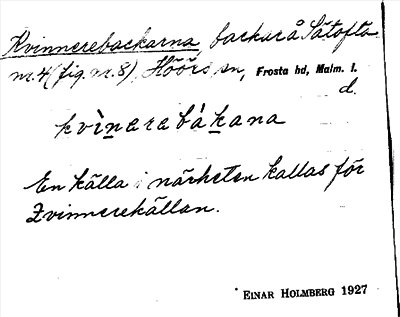 Kvinnerebackarna, backar å Sätofta
nr. 4 (fig. nr. 8), Höörs sn, Frosta hd, Malm. l.
d.
kvìnarabákana
En källa i närheten kallas för
Kvinnerekällan.
EINAR HOLMBERG 1927